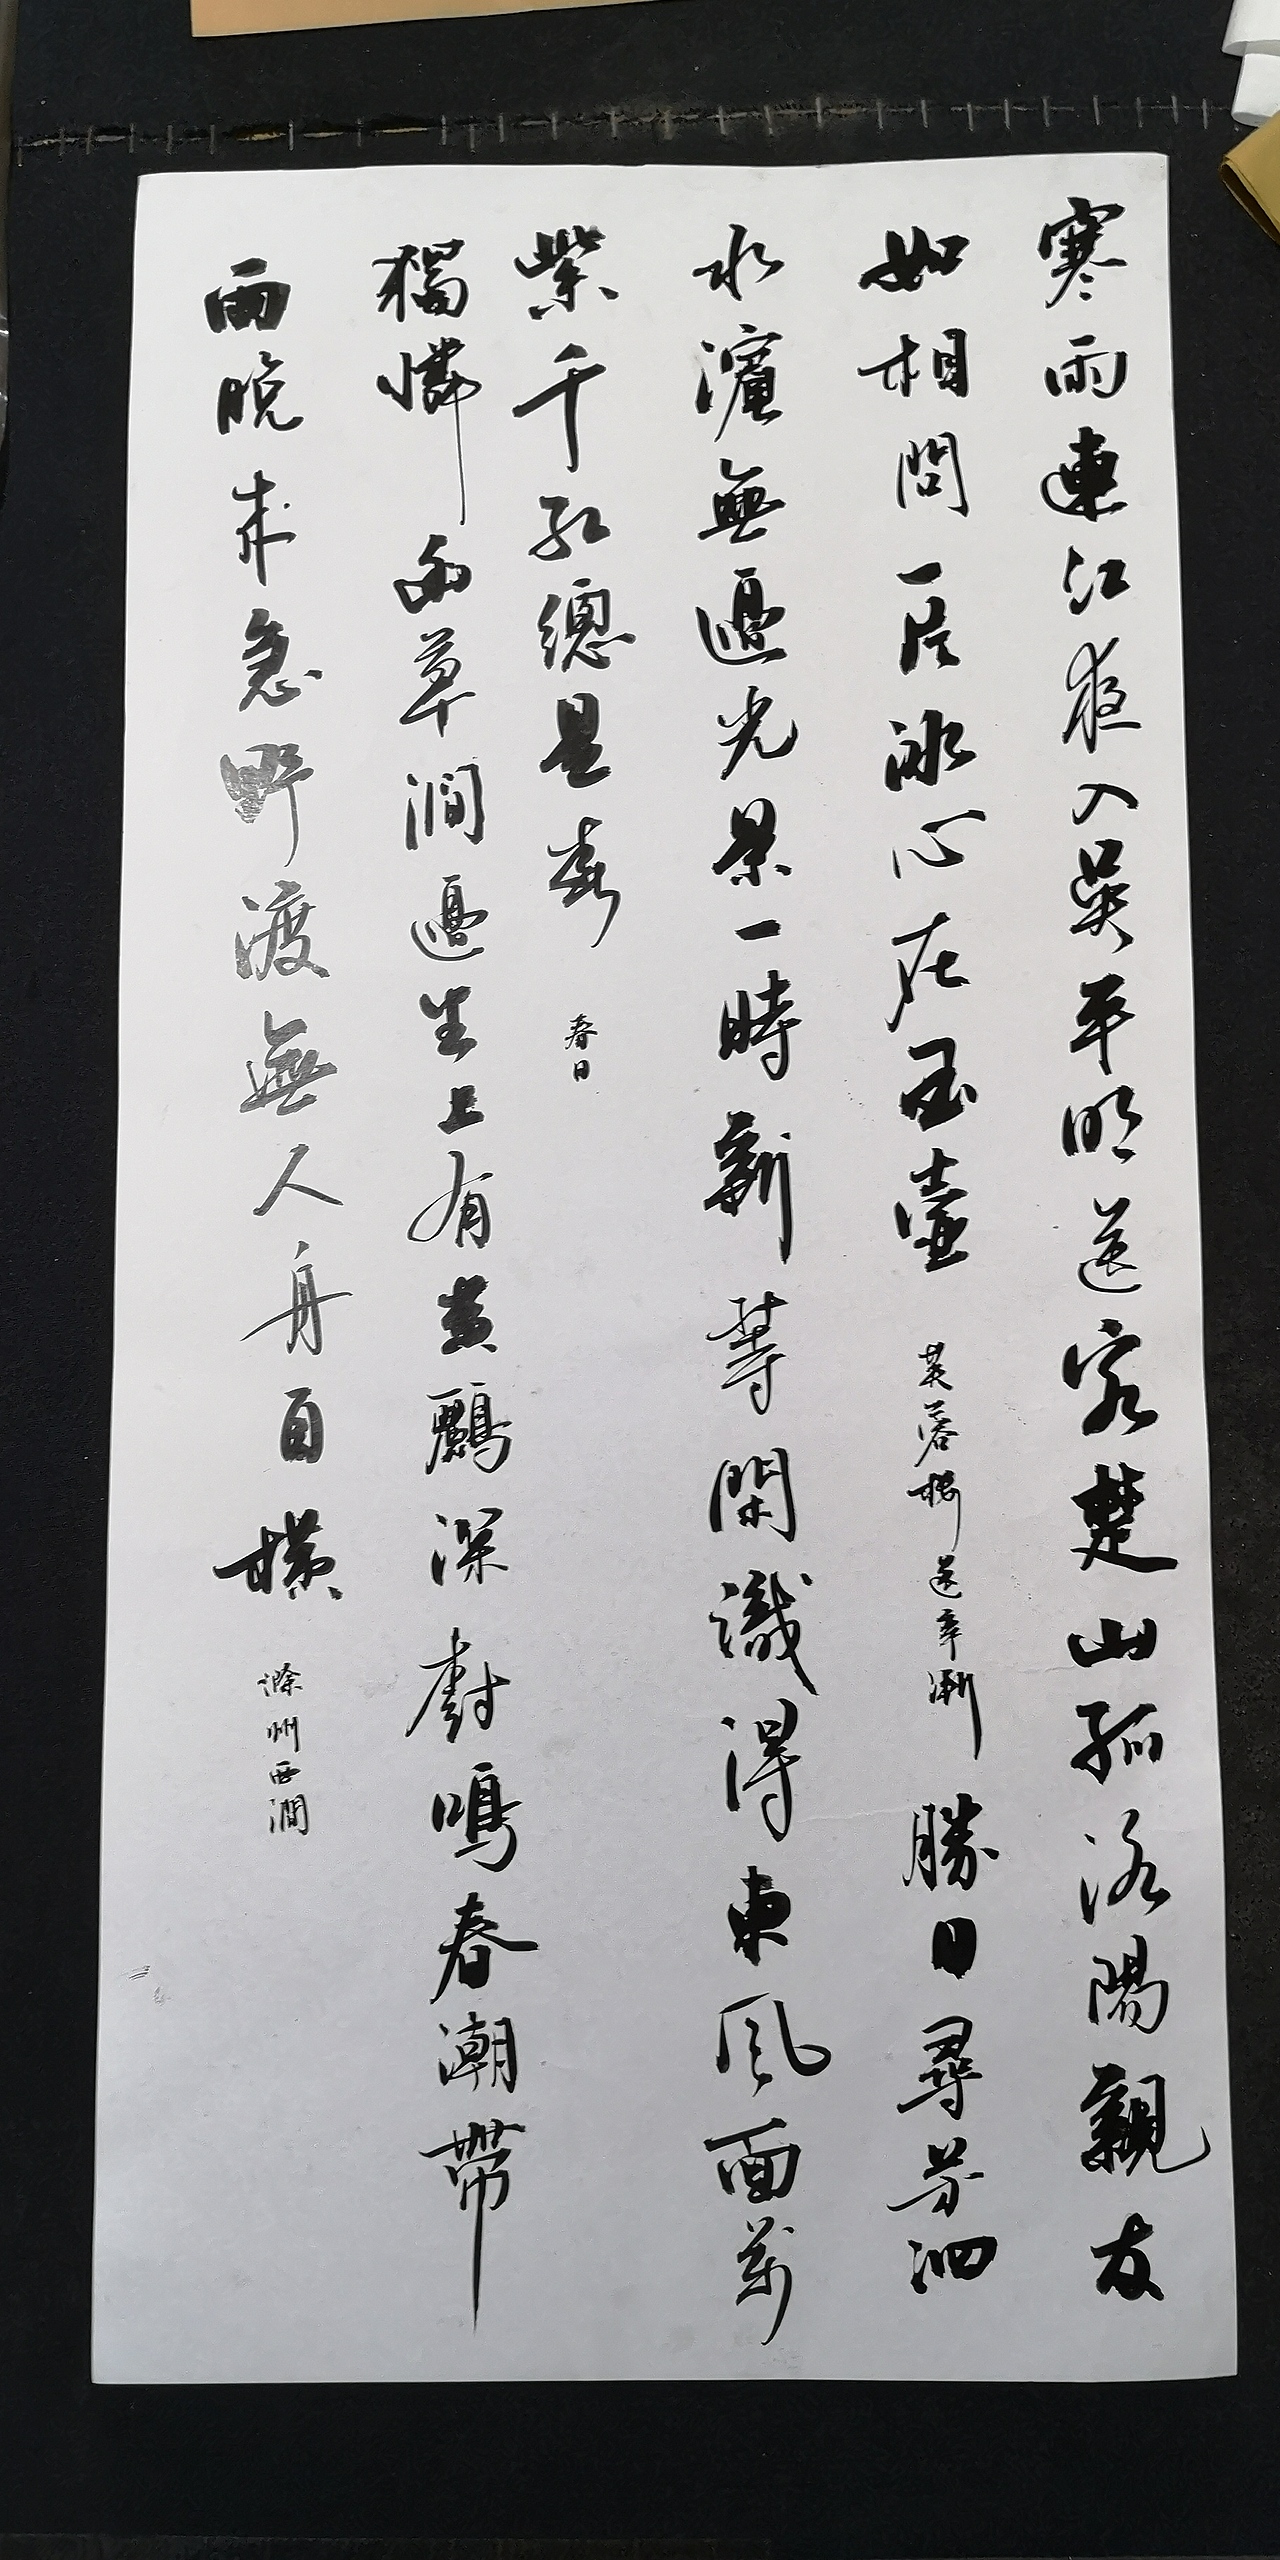 寒雨連江夜入吳平明送客楚山孤洛陽親友
如相問一片冰心在玉壺 芙蓉樓送辛漸 勝日尋芳泗
水濱無邊光景一時新等閑識得東風面萬
紫千紅總是春 春日
獨憐幽草澗邊生上有黃鸝深樹鳴春潮帶
雨晚來急野渡無人舟自橫 滁州西澗